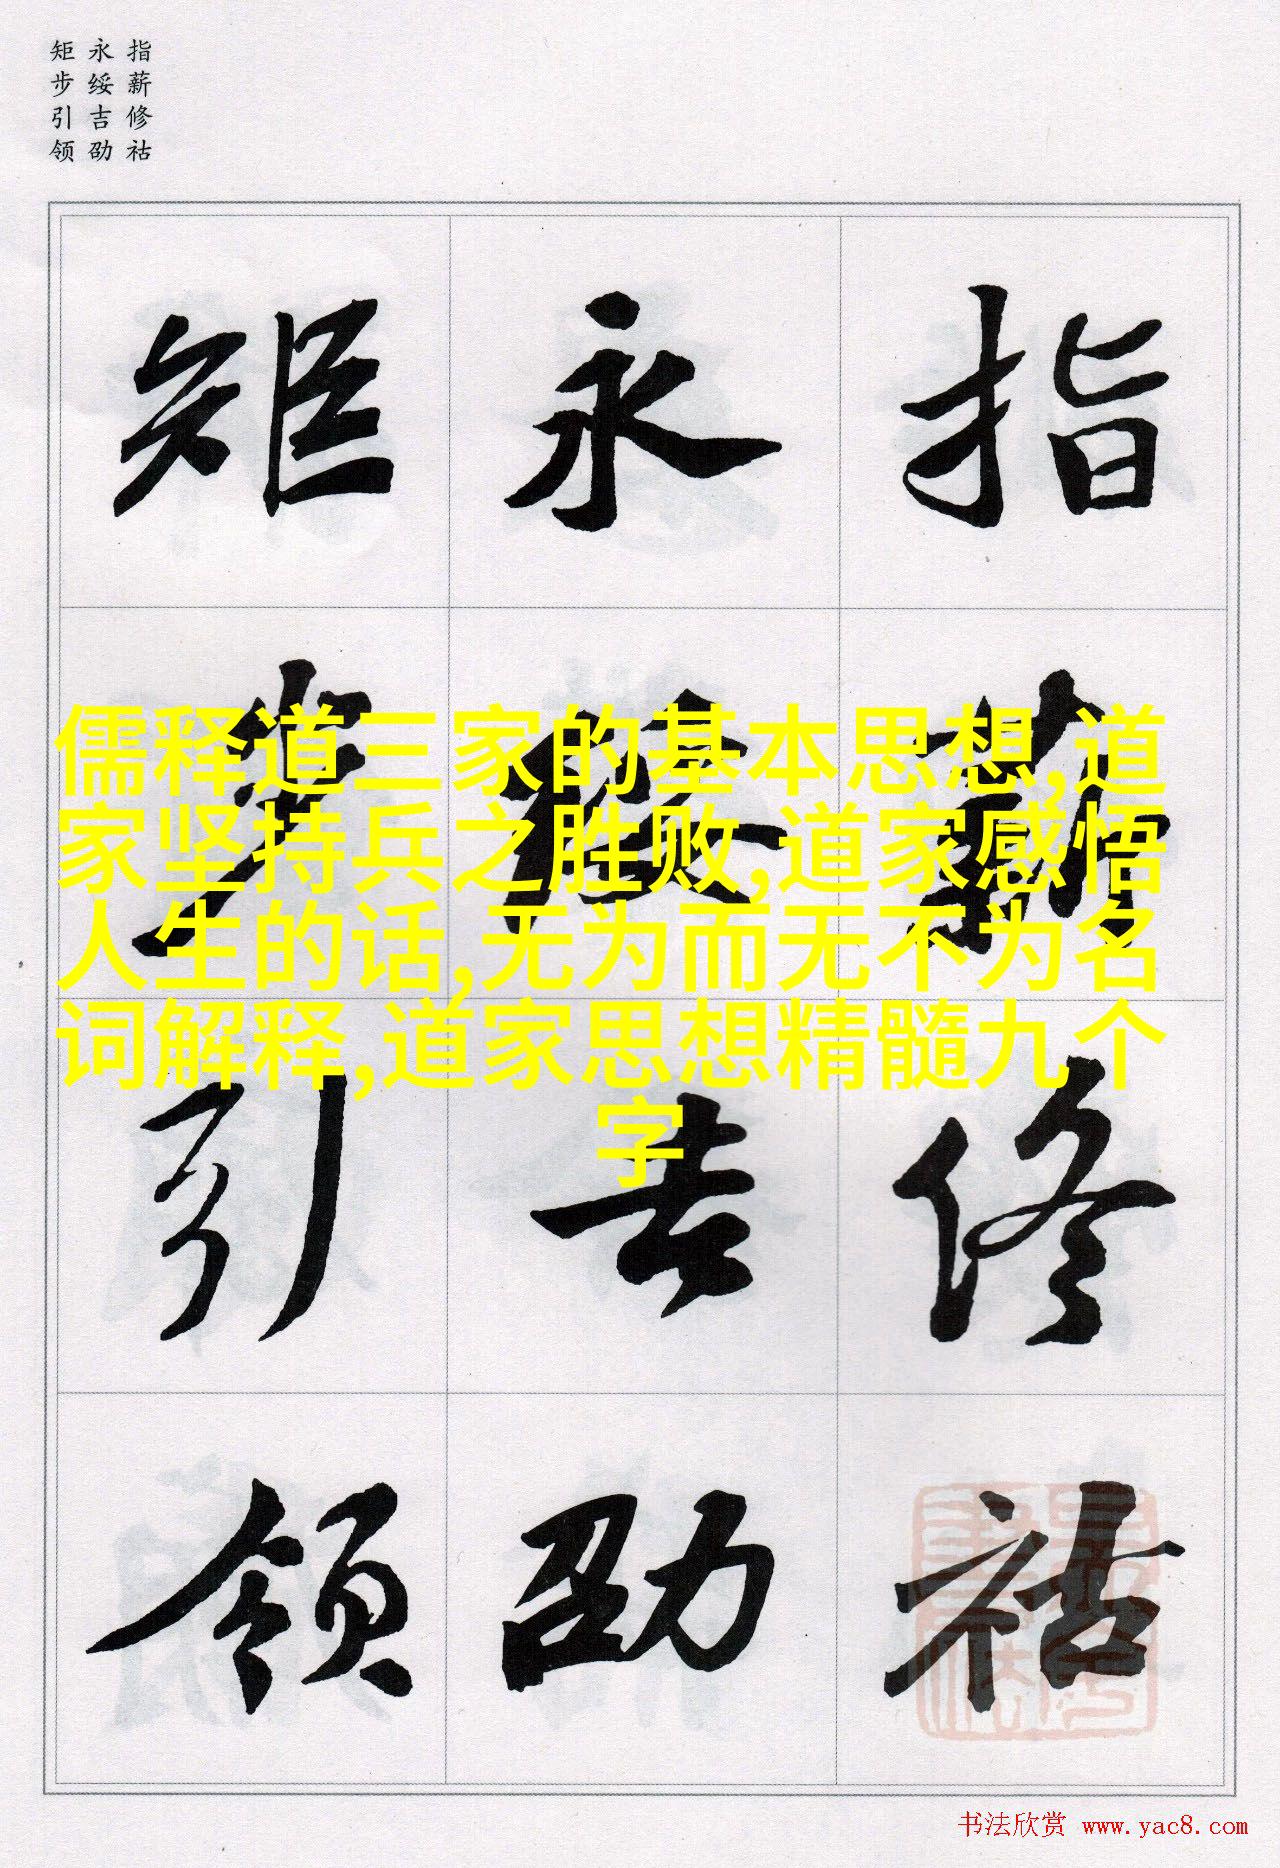 指薪修祜
永绥吉劭
矩步引领
指薪修祜
永绥吉劭
矩步引领
儒释道三家的基本思想,道
家坚持兵之胜败,道家感悟
人生的话,无为而无不为名
词解释,道家思想精髓九个
字
书法欣赏 www.yac8.com